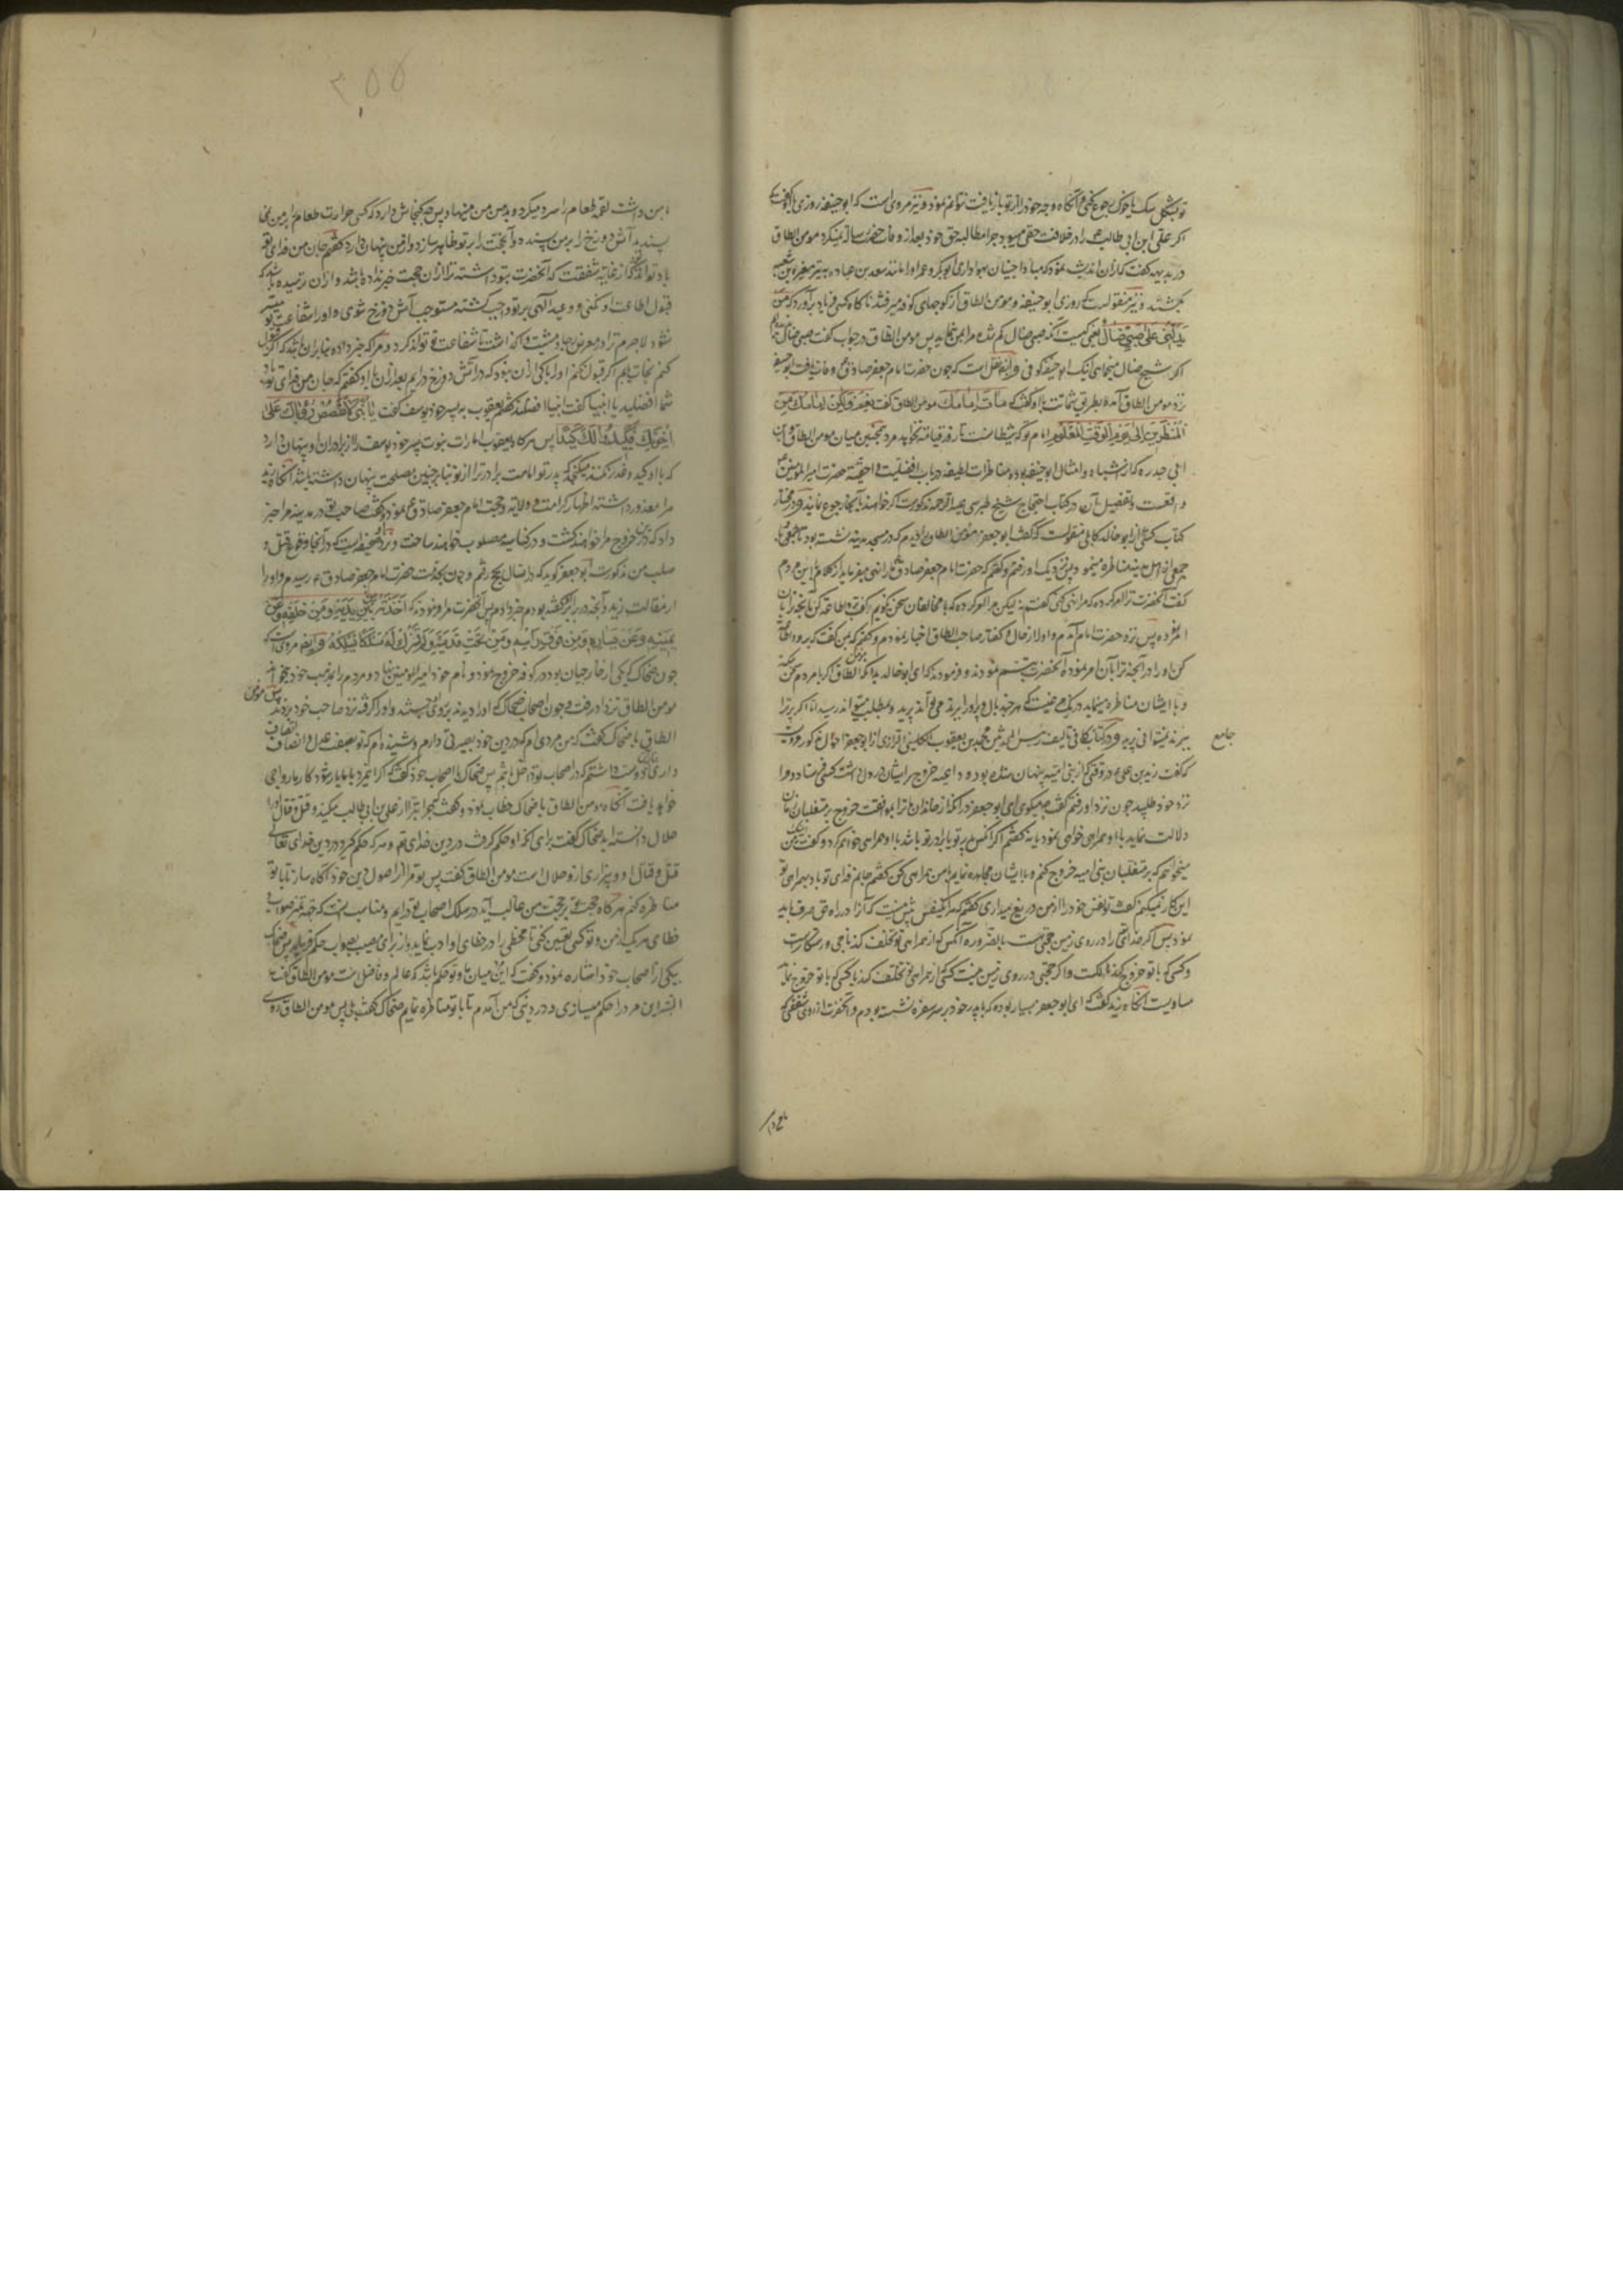 توبشکل سک یا خوک رجوع نکنی و آنگاه وجه خود را از تو باز یافت نتوانم نمود و نیز مروی است که ابو حنیفه روزی با او گفت که
اکر علی ابن ابی طالب را در خلافت حقی میبود چرا مطالبه حق خود بعد از وفات حضرت رسالت نمیکرد مومن الطاق
در بدیهه گفت که از آن اندیشه نمود که مبادا جنیان بهواداری ابوبکر و عمر او را مانند سعد بن عباده به تیر مغیره بن شعبه
بکشند و نیز منقولست که روزی ابو حنیفه و مومن الطاق از کوچهای کوفه میرفتند ناگاه کسی فریاد برآورد که من
یدلنی علی صبی ضال یعنی کیست که صبی ضال کم شده مرا بمن نماید پس مومن الطاق در جواب گفت صبی ضال ندیده‌ام
اکر شیخ ضال میخواهی اینک ابو حنیفه کوفی و ایضا نقل است که چون حضرت امام جعفر صادق ع وفات یافت ابو حنیفه
نزد مومن الطاق آمده بطریق شماتت با او گفت که مات امامک مومن الطاق گفت نعم ولکن امامک من
المنظرین الی یوم الوقت المعلوم امام تو که شیطانست تا روز قیامت نخواهد مرد همچنین میان مومن الطاق و ابن
ابی حدره که از اشباه و امثال ابو حنیفه بوده مناظرات لطیفه در باب افضلیت و احقیت حضرت امیر المومنین ع
واقعست و تفصیل آن در کتاب احتجاج شیخ طبرسی علیه الرحمه مذکورست اکر خواهند بآنجا رجوع نمایند و در مختار
کتاب کشی از ابو خالد کابلی منقولست که گفت ابو جعفر مومن الطاق را دیدم که در مسجد مدینه نشسته بود با
جمعی از اهل مدینه مناظره مینمود پس نزدیک او رفتم و گفتم که حضرت امام جعفر صادق ع ما را نهی میفرماید از کلام با این مردم
گفت آنحضرت ترا امر کرده که مرا نهی کنی گفتم نه لیکن مرا امر کرده که با مخالفان سخن نکویم گفت برو اطاعت کن بآنچه ترا بآن
امر فرموده پس نزد حضرت امام آمدم و او را از حال و گفتار صاحب الطاق اخبار نمودم و گفتم که بمن گفت که برو و اطاعت
کن او را در آنچه ترا بآن امر نموده آنحضرت تبسم نمودند و فرمودند که ای ابو خالد بدانکه مومن الطاق اکر با مردم سخن کند
و با ایشان مناظره مینماید در یک مرغیست که هر چند بال و پر او را ببرند می تواند پرید و بمطلب میتواند رسید اما اکر پر ترا
ببرند نمیتوانی پرید و در کتاب کافی تالیف رئیس المحدثین محمد بن یعقوب الکلینی الرازی از ابو جعفر احول مذکور مرویست
جامع
که گفت زید بن علی ع در وقتی که از بنی امیه پنهان شده بوده و داعیه خروج بر ایشان در دل داشت کسی فرستاد و مرا
نزد خود طلبید چون نزد او رفتم گفت چه میکوی ای ابو جعفر در آنکه از خاندان ما ترا بموافقت خروج بر متغلبان زمان
دلالت نماید با او همراهی خواهی نمود یا نه گفتم اکر آنکس پدر تو یا برادر تو باشد با او همراهی خواهم کرد و گفت من
میخواهم که بر متغلبان بنی امیه خروج کنم و با ایشان مجاهده نمایم با من همراهی کن گفتم جانم فدای تو باد بهمراهی تو
این کار نمیکنم گفت تو نفس خود را از من دریغ میداری گفتم مرا یک نفس بیش نیست که آنرا در راه حق صرف باید
نمود پس اکر خدایرا در روی زمین حجتی هست بالضروره آنکس که از همراهی تو تخلف کند ناجی و رستکارست
و کسی که با تو خروج کند هالکت و اکر حجتی در روی زمین نیست کسی که از همراهی تو تخلف کند با کسی که با تو خروج نماید
مساویست آنگاه زید گفت که ای ابو جعفر بسیار بوده که با پدر خود بر سر سفره نشسته بودم و آنحضرت از روی شفقتی که
با من داشت لقمه طعام را سرد میکرد و بدهن من مینهاد پس چه گنجایش دارد که کسی حرارت طعام را بر من نمی
پسندید آتش دوزخ را بر من پسندد و آن حجت را بر تو ظاهر سازد و از من پنهان دارد گفتم جان من فدای تو
باد تواند که از غایت شفقت که آنحضرت بتو داشته ترا از آن حجت خبر نداده باشد و از آن ترسیده باشد که
قبول اطاعت او نکنی و وعید الهی بر تو واجب گشته مستوجب آتش دوزخ شوی و او را شفاعت تو میسر
نشود لاجرم ترا در معرض مشیت گذاشت تا شفاعت تو تواند کرد و مرا که خبر داده بنابر آن باشد که اگر قبول
کنم نجات یابم و اکر قبول نکنم او را باکی از آن نبود که در آتش دوزخ درآیم بعد از آن با او گفتم که جان من فدای تو باد
شما افضلید یا انبیا گفت انبیا افضلند گفتم یعقوب به پسر خود یوسف گفت یا بنی لا تقصص رؤیاک علی
اخوتک فیکیدوا لک کیدا پس هر گاه یعقوب امارات نبوت پسر خود یوسف را از برادران او پنهان دارد
که با او کید و غدر نکنند میگنجد که پدر تو امامت برادر ترا از تو بنابر چنین مصلحت پنهان داشته باشد آنگاه زید
مرا معذور داشته اظهار کرامت و ولایت و حجت امام جعفر صادق ع نمود و گفت صاحب تو در مدینه مرا خبر
داد که در این خروج مرا خواهند کشت و در کناسه مصلوب خواهند ساخت و نزد او صحیفه است که در آنجا وقوع قتل و
صلب من مذکورست ابو جعفر گوید که در آن سال بحج رفتم و چون بخدمت حضرت امام جعفر صادق ع رسیدم و او را
از مقالت زید و آنچه در برابر گفته بودم خبر دادم پس آنحضرت مرا فرمود که اخذته من بین یدیه و من خلفه و عن
یمینه و عن یساره و من فوق راسه و من تحت قدمیه و لم تترک له مسلکا یسلکه و ایضا مرویست که
چون ضحاک که یکی از خارجیان بود در کوفه خروج نمود و نام خود امیر المومنین نهاد و مردم را بمذهب خود میخواند
مومن الطاق نزد او رفت و چون اصحاب ضحاک او را دیدند بر وی بجستند و او را گرفته نزد صاحب خود بردند پس مومن
الطاق با ضحاک گفت که من مردی ام که در دین خود بصیرتی دارم و شنیده ام که تو بصفت عدل و انصاف اتصاف
داری بنابرین دوست داشتم که در اصحاب تو داخل باشم پس ضحاک با اصحاب خود گفت که اکر این مرد با ما یار شود کار ما رواجی
خواهد یافت آنگاه مومن الطاق با ضحاک خطاب نموده گفت که چرا تبرا از علی بن ابی طالب میکنید و قتل و قتال او را
حلال دانسته اید ضحاک گفت برای آنکه او حکم گرفت در دین خدای تعالی و هر که حکم گیرد در دین خدای تعالی
قتل و قتال او و بیزاری از و حلال است مومن الطاق گفت پس تو مرا از اصول دین خود آگاه ساز تا با تو
مناظره کنم هر گاه حجت تو بر حجت من غالب آید در سلک اصحاب تو درآیم و مناسب آنست که جهت تمیز صواب و
خطای هر یک از من و تو کسی تعیین کنی تا مخطی را در خطای او ادب نماید و از برای مصیب بصواب حکم فرماید پس ضحاک
بیکی از اصحاب خود اشاره نمود و گفت که این میان ما و تو حکم باشد که عالم و فاضل است مومن الطاق گفت
البته این مرد را حکم میسازی در دینی که من آمدم تا با تو مناظره نمایم ضحاک گفت بلی پس مومن الطاق روی